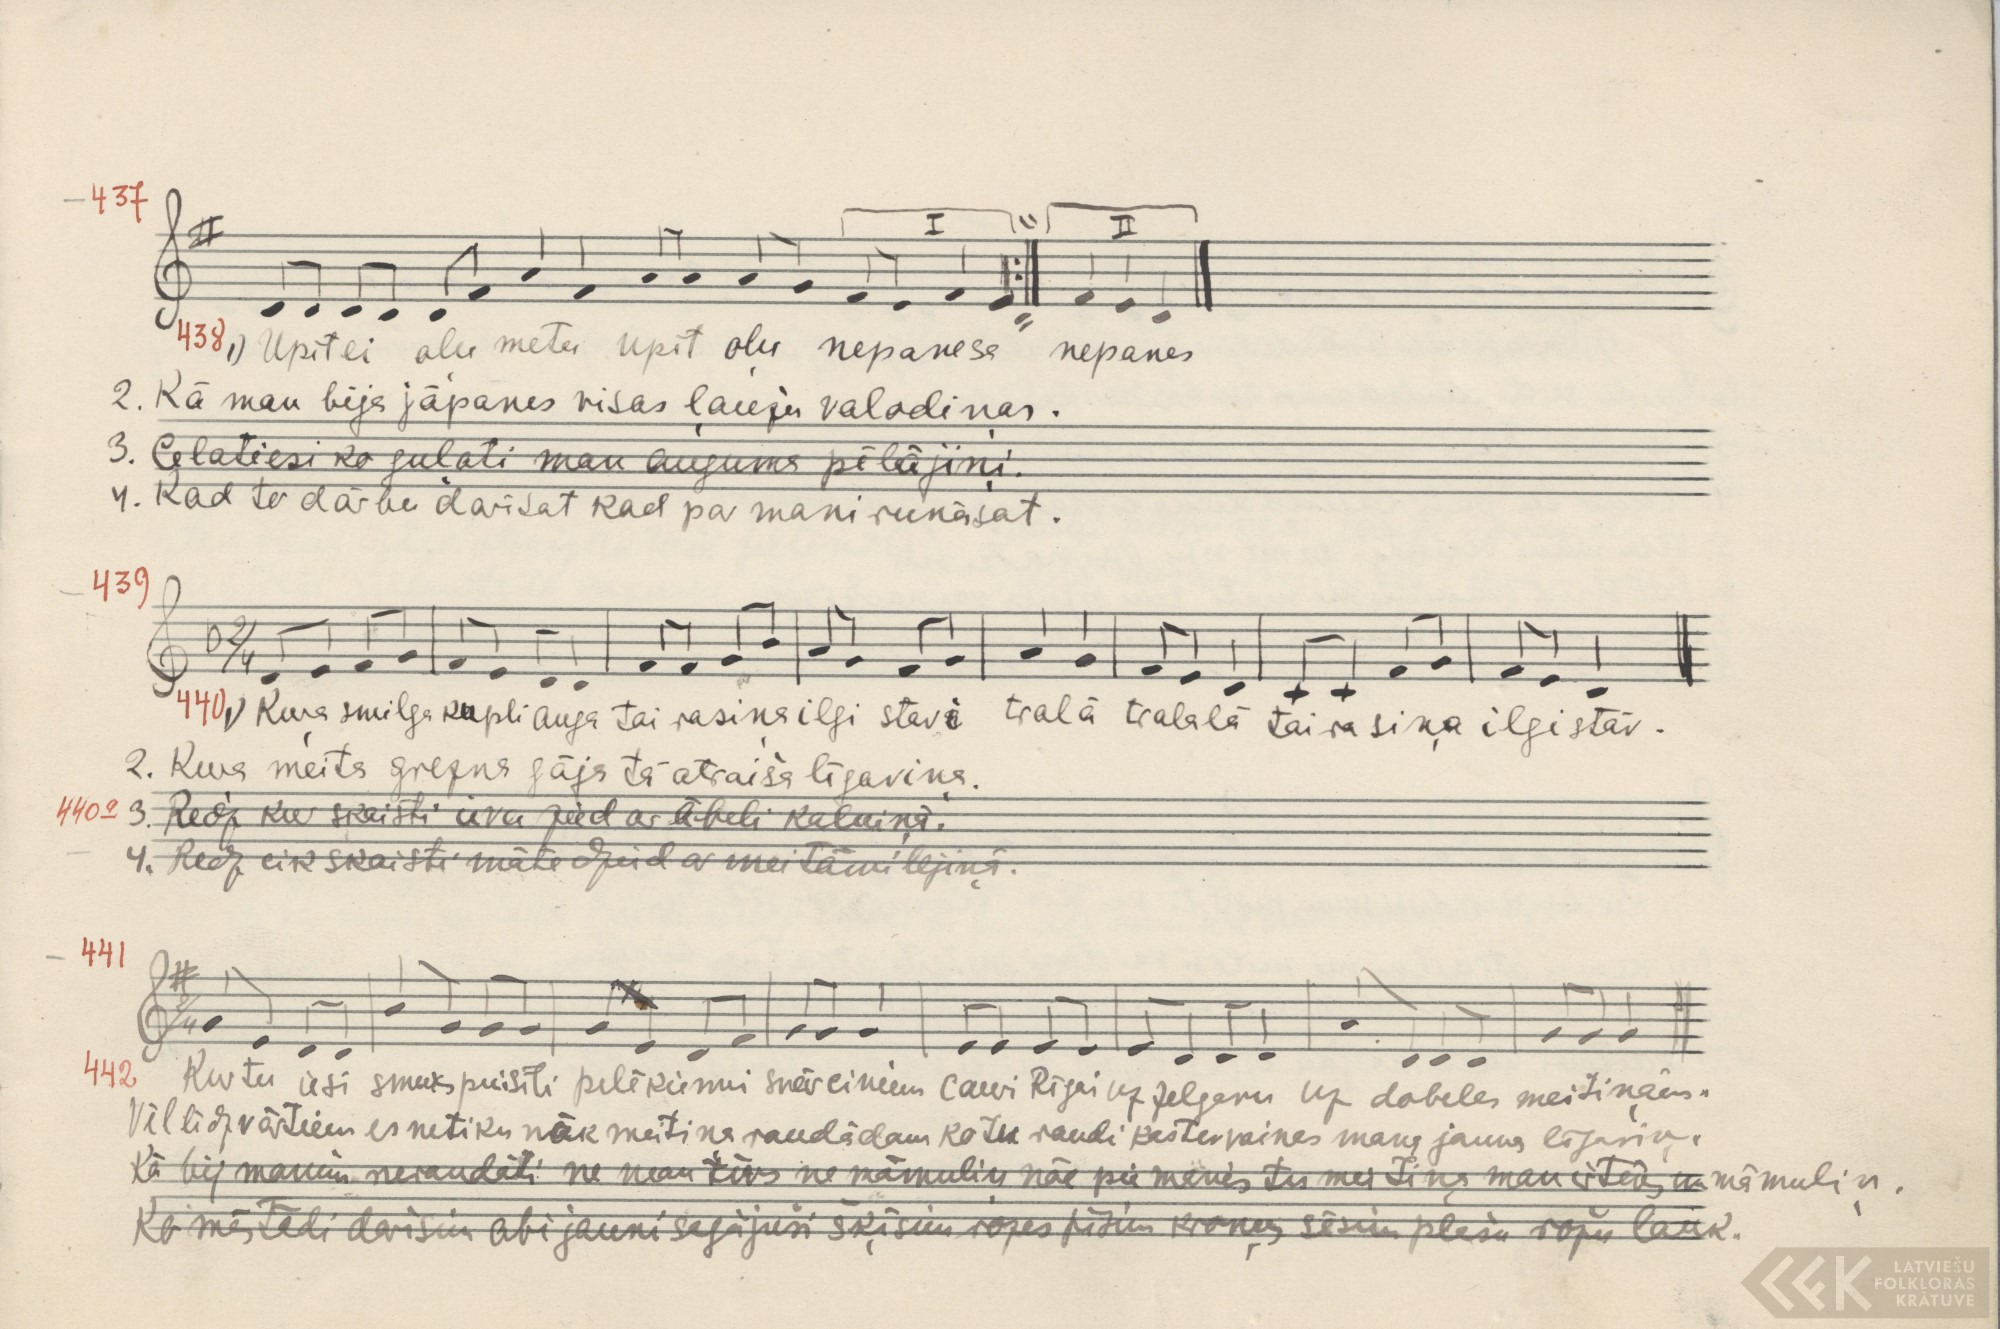 437
I II
438 1) Upītei oļu metu upīt oļu nepanesa nepanes
2. Kā man bija jāpanes visas ļaužu valodiņas.
3. Celatiesi ko gulati man auguma pēlājiņi.
4. Kad to dārbu darīsat kad par mani runāsat.
439
2/4
440 1) Kura smilga kupli auga tai rasiņa ilgi stāvi tralā tralalā tai rasiņa ilgi stāv.
2. Kura meita grezna gāja tā atraiša līgaviņa.
440a 3. Redz kur skaisti ieva zied ar ābeli kalniņā.
4. Redz cik skaisti māte dzied ar meitām lejiņā.
441
2/4
442 Kur tu iesi smuks puisīti pelēkiemi svārciņiem cauri Rīgai uz Jelgavu uz dobeles meitiņām.
Vēl līdz vārtiem es netiku nāk meitiņa raudādam ko tu raudi kas tev vaines mana jauna līgaviņ.
Kā bij manim neraudāti ne man tēvs ne māmuliņ nāc pie manis tu meitiņa man ir tēvs un māmuliņ.
Ko mēs tādi darīsim abi jauni sagājuši šķīsim rozes pīsim kroņus sēsim plašu rožu lauk.
LATVIEŠU
FOLKLORAS
KRĀTUVE